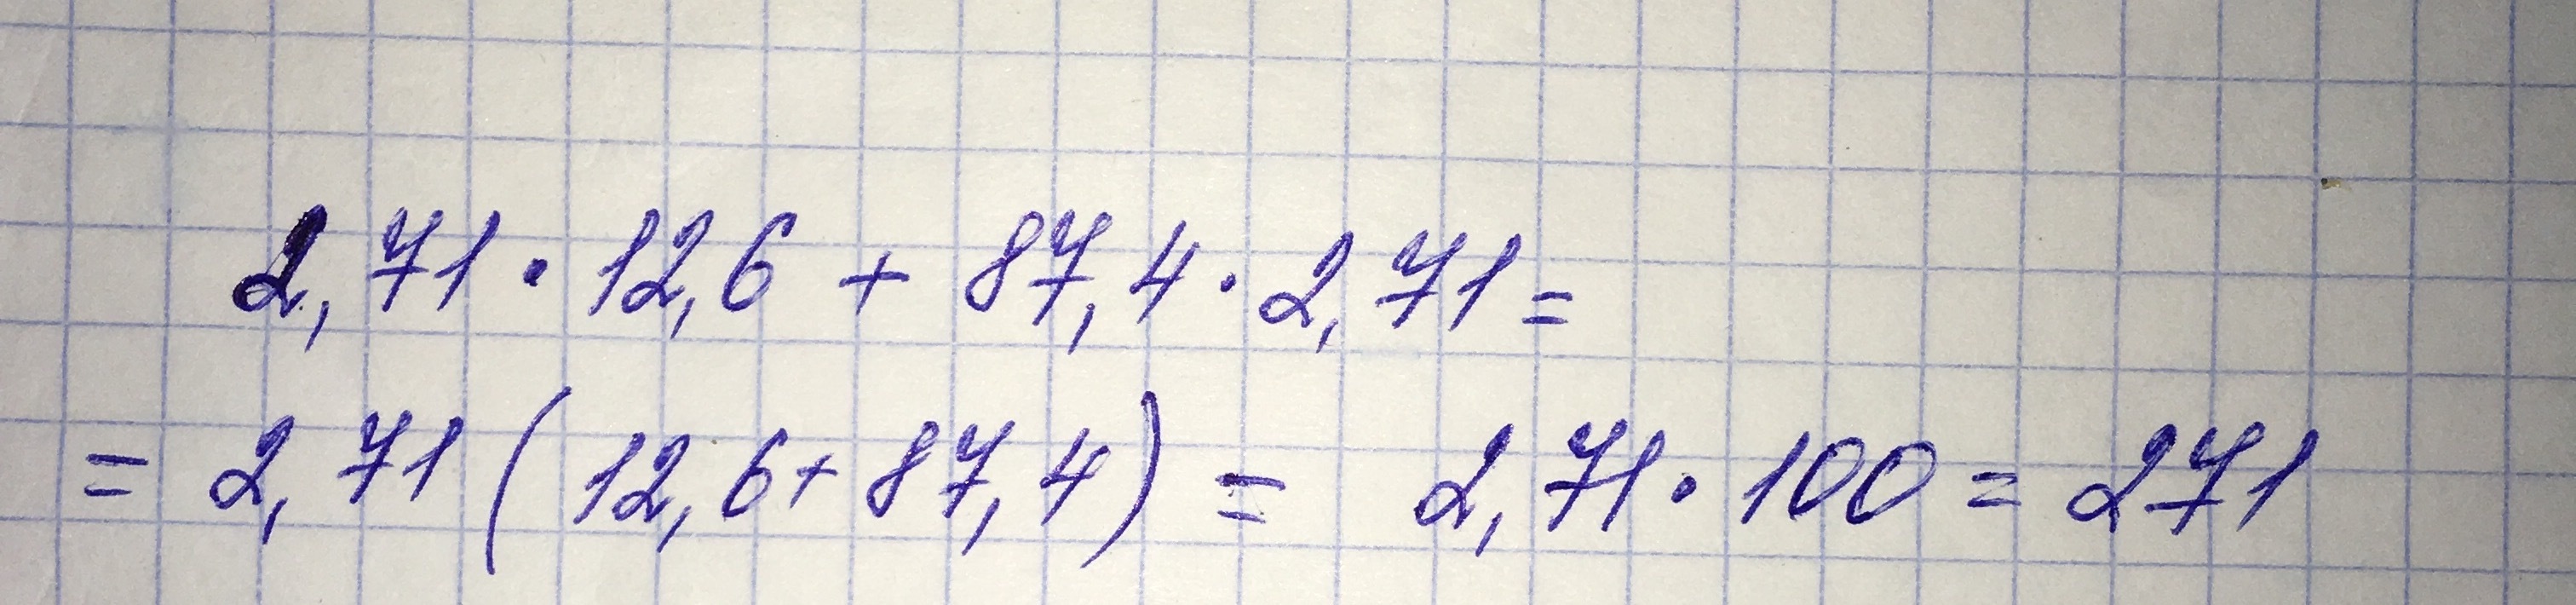 2,71 · 12,6 + 87,4 · 2,71 =
= 2,71 (12,6 + 87,4) = 2,71 · 100 = 271